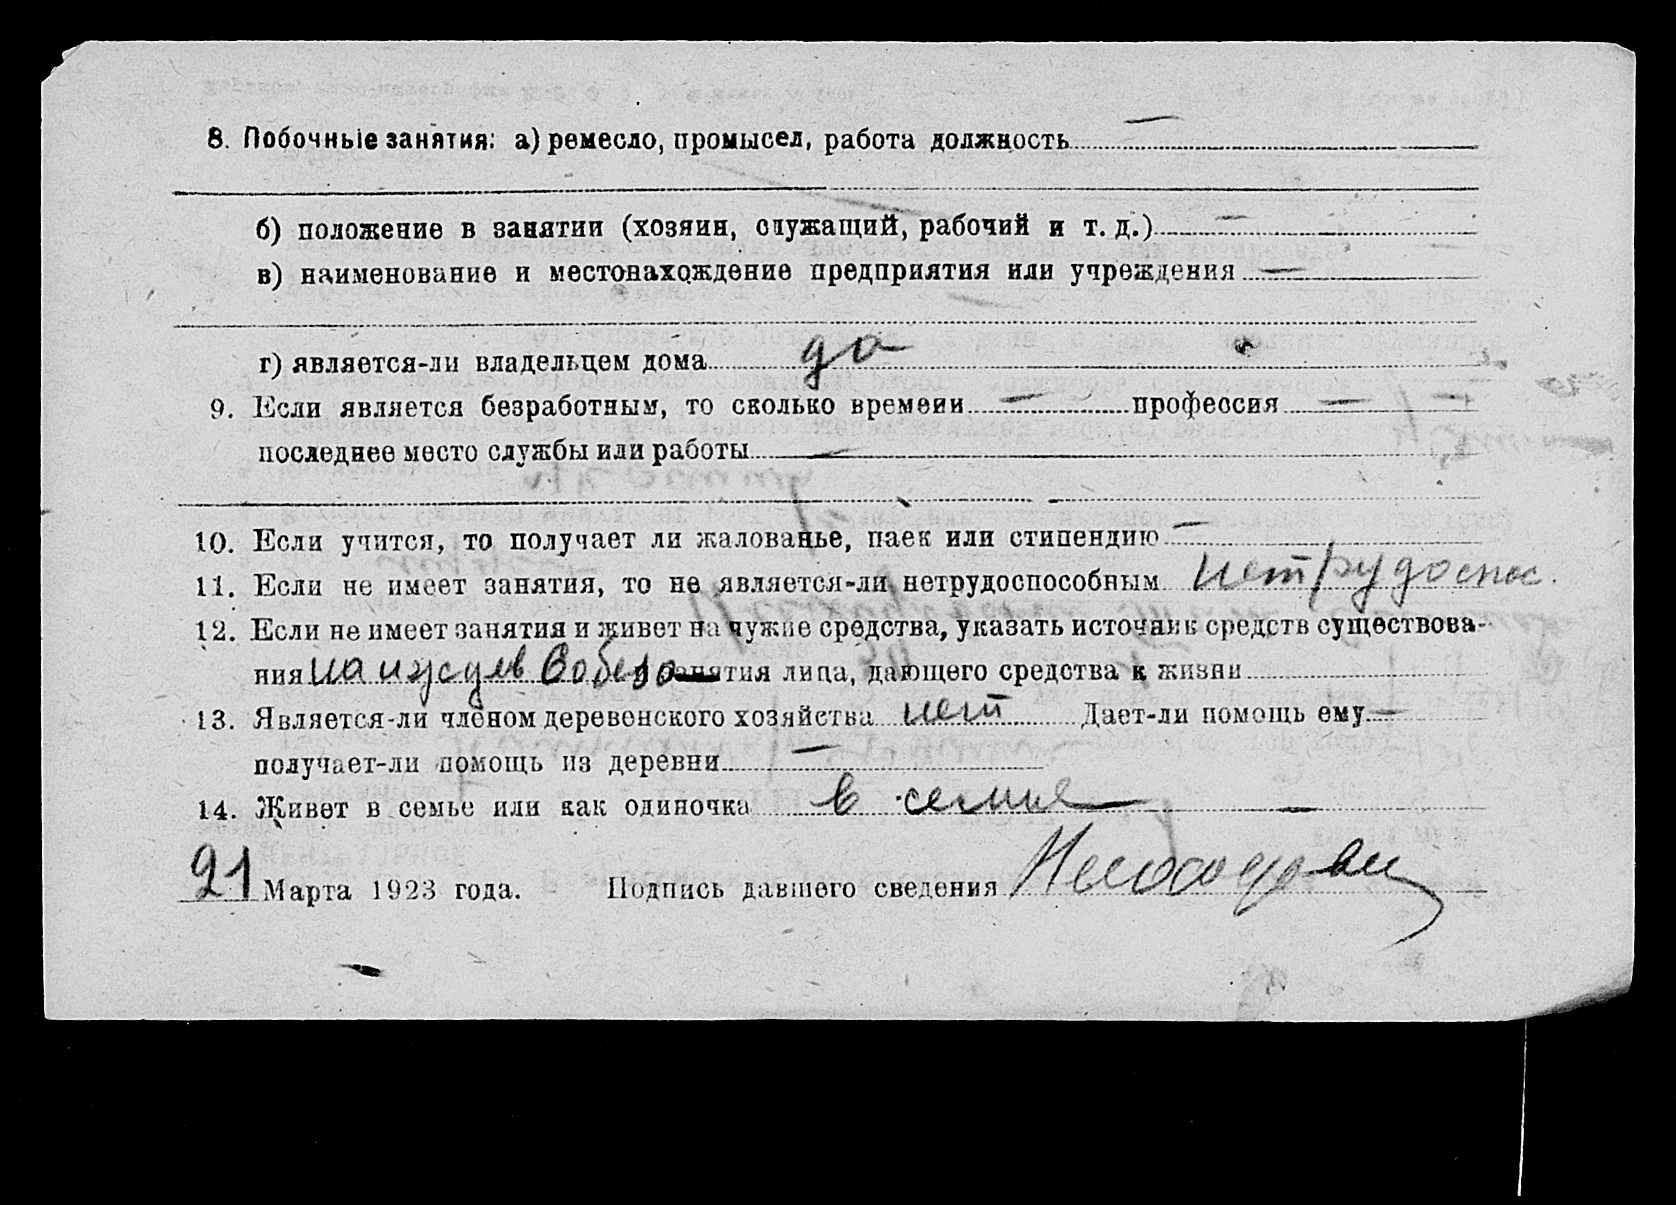 8. Побочные занятия: а) ремесло, промысел, работа должность —
б) положение в занятии (хозяин, служащий, рабочий и т. д.) —
в) наименование и местонахождение предприятия или учреждения —
г) является-ли владельцем дома да
9. Если является безработным, то сколько времени — профессия —
последнее место службы или работы —
10. Если учится, то получает ли жалованье, паек или стипендию —
11. Если не имеет занятия, то не является-ли нетрудоспособным нетрудоспос.
12. Если не имеет занятия и живет на чужие средства, указать источник средств существова-
ния на иждев Собеза занятия лица, дающего средства к жизни
13. Является-ли членом деревенского хозяйства нет Дает-ли помощь ему —
получает-ли помощь из деревни —
14. Живет в семье или как одиночка в семье
21 Марта 1923 года. Подпись давшего сведения